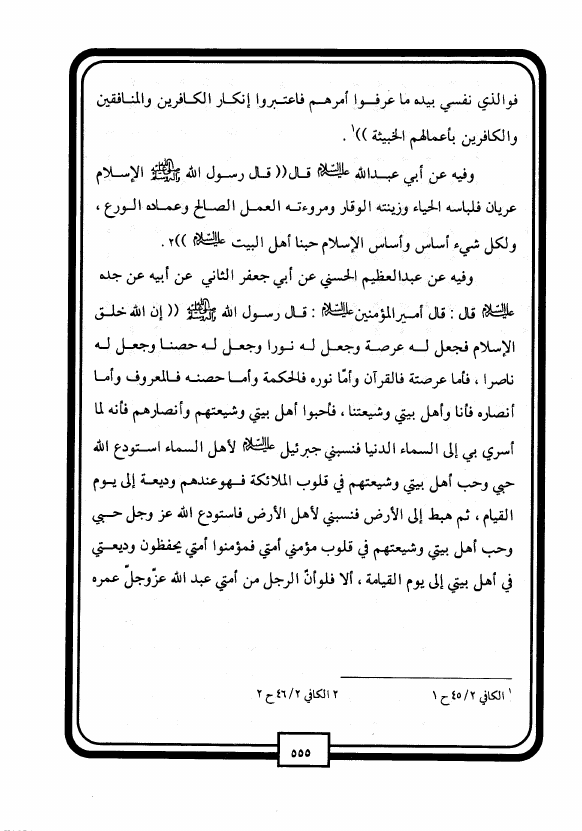 فوالذي نفسي بيده ما عرفوا أمرهم فاعتبروا إنكار الكافرين والمنافقين
والكافرين بأعمالهم الخبيثة ))¹ .
وفيه عن أبي عبدالله عليه السلام قال(( قال رسول الله صلى الله عليه وآله الإسلام
عريان فلباسه الحياء وزينته الوقار ومروءته العمل الصالح وعماده الورع ،
ولكل شيء أساس وأساس الإسلام حبنا أهل البيت عليه السلام ))٢ .
وفيه عن عبدالعظيم الحسني عن أبي جعفر الثاني عن أبيه عن جده
عليه السلام قال : قال أميرالمؤمنين عليه السلام : قال رسول الله صلى الله عليه وآله (( إن الله خلق
الإسلام فجعل له عرصة وجعل له نورا وجعل له حصنا وجعل له
ناصرا ، فأما عرصتة فالقرآن وأمّا نوره فالحكمة وأما حصنه فالمعروف وأما
أنصاره فأنا وأهل بيتي وشيعتنا ، فأحبوا أهل بيتي وشيعتهم وأنصارهم فأنه لما
أسري بي إلى السماء الدنيا فنسبني جبرئيل عليه السلام لأهل السماء استودع الله
حبي وحب أهل بيتي وشيعتهم في قلوب الملائكة فهوعندهم وديعة إلى يوم
القيام ، ثم هبط إلى الأرض فنسبني لأهل الأرض فاستودع الله عز وجل حبي
وحب أهل بيتي وشيعتهم في قلوب مؤمني أمتي فمؤمنوا أمتي يحفظون وديعتي
في أهل بيتي إلى يوم القيامة ، ألا فلوأنّ الرجل من أمتي عبد الله عزّوجلّ عمره
¹ الكافي ٤٥/٢ ح ١
٢ الكافي ٤٦/٢ ح ٢
٥٥٥